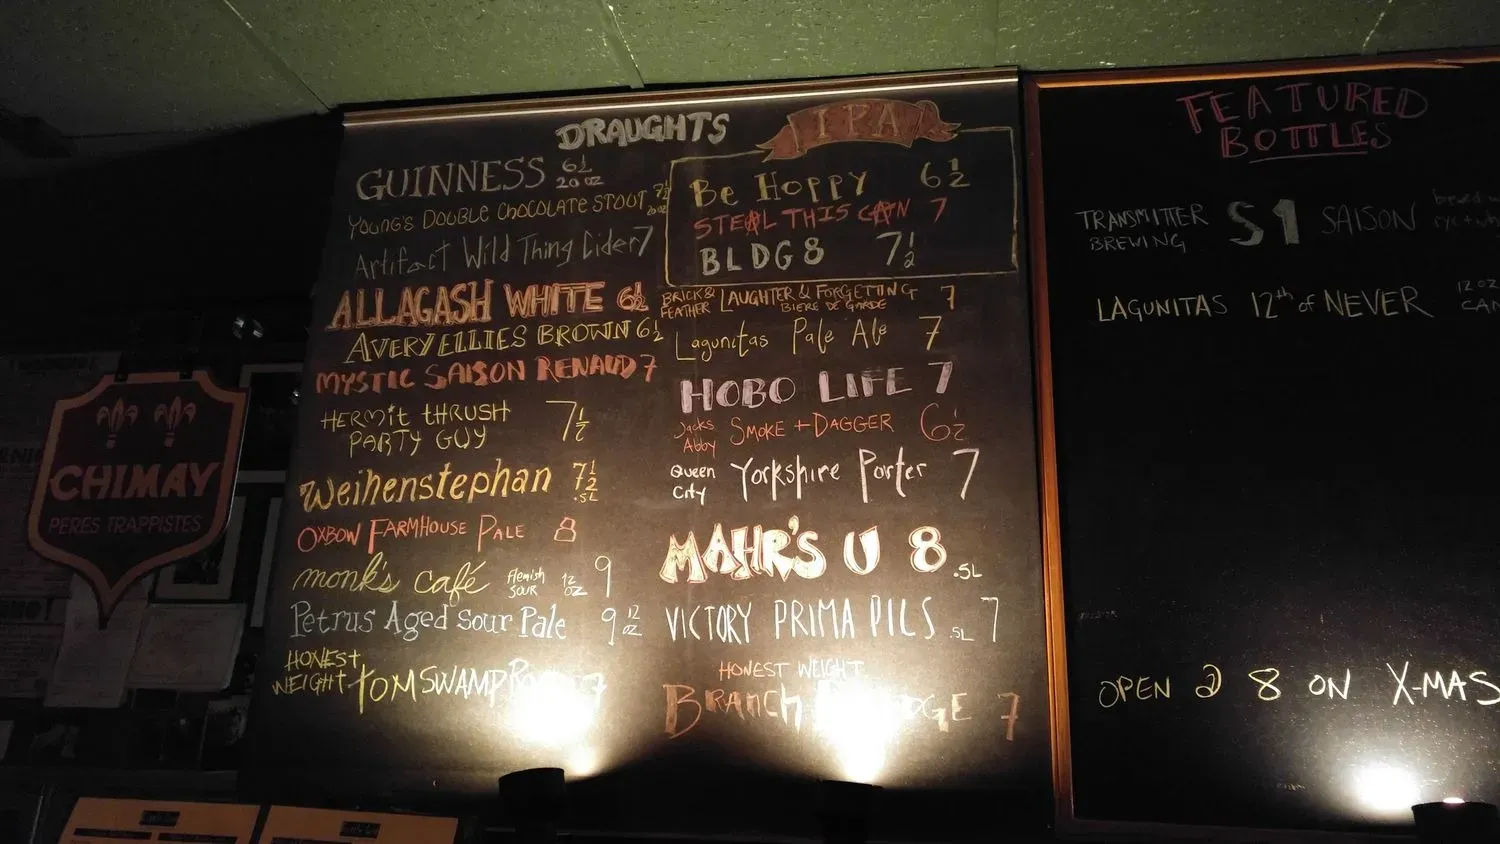 DRAUGHTS
GUINNESS 6½ 20 OZ
YOUNG'S DOUBLE CHOCOLATE STOUT 7½ 20 OZ
Artifact Wild Thing Cider 7
ALLAGASH WHITE 6½
AVERY ELLIES BROWN 6½
MYSTIC SAISON RENAUD 7
HERMIT THRUSH 7½
PARTY GUY
Weihenstephan 7½ .5L
OXBOW FARMHOUSE PALE 8
monk's café Flemish SOUR 12 OZ 9
Petrus Aged Sour Pale 9 12 OZ
HONEST WEIGHT TOM SWAMP 7
IPA
Be Hoppy 6½
STEAL THIS CAN 7
BLDG 8 7½
BRICK & FEATHER LAUGHTER & FORGETTING 7
BIERE DE GARDE
Lagunitas Pale Ale 7
HOBO LIFE 7
Jacks Abby SMOKE + DAGGER 6½
Queen City Yorkshire Porter 7
MAHR'S U 8 .5L
VICTORY PRIMA PILS .5L 7
HONEST WEIGHT
BRANCH 7
FEATURED
BOTTLES
TRANSMITTER BREWING S1 SAISON
LAGUNITAS 12th of NEVER 12 OZ CAN
OPEN @ 8 ON X-MAS
CHIMAY
PERES TRAPPISTES